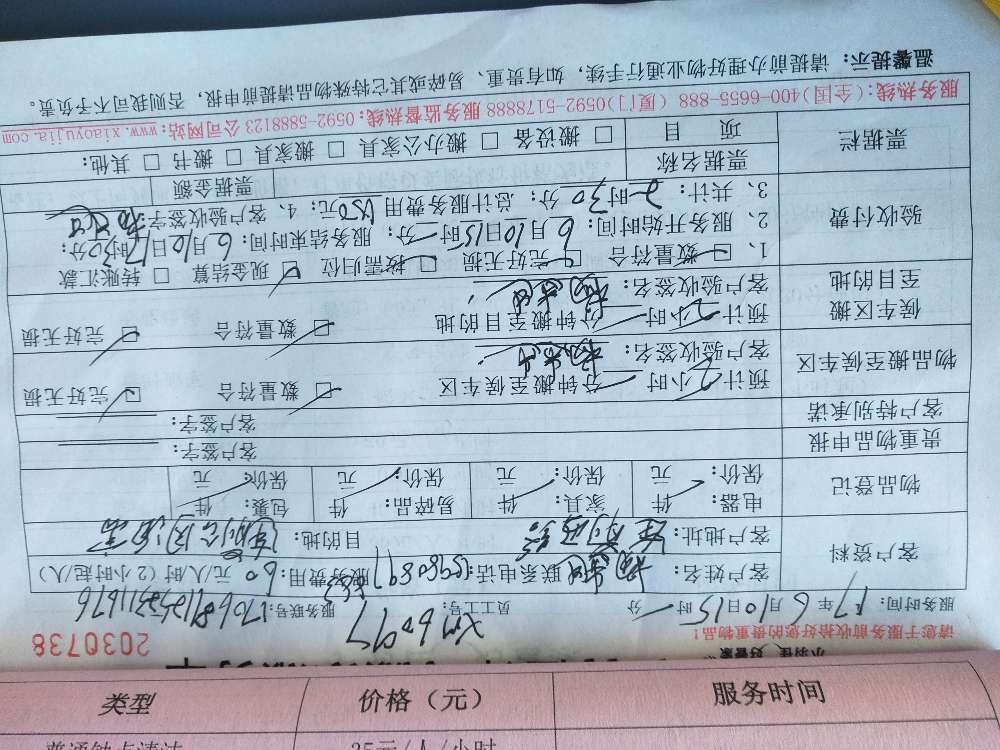 2030738
请您于服务前收拾好您的贵重物品!
服务时间: 17年6月10日15时一分 员工工号: XM6097 服务联号:
客户资料 客户姓名: 联系电话: 服务费用: 60 元/人/时 (2小时起/人)
客户地址: 目的地:
物品登记 电器: 件 家具: 件 易碎品: 件 包裹: 件
保价: 元 保价: 元 保价: 元 保价: 元
贵重物品申报 客户签字:
客户特别承诺 客户签字:
物品搬至候车区 预计2小时 分钟搬至候车区 ☑ 数量符合 ☑ 完好无损
客户验收签名:
候车区搬至目的地 预计2小时 分钟搬至目的地 ☑ 数量符合 ☑ 完好无损
客户验收签名:
验收付费 1、☑ 数量符合 ☑ 完好无损 ☑ 按需归位 ☑ 现金结算 □ 转账汇款
2、服务开始时间: 6月10日15时一分; 服务结束时间: 6月10日17时30分;
3、共计: 2时30分; 总计服务费用 150元; 4、客户验收签字:
票据栏 票据名称 票据金额
项 目 □ 搬设备 □ 搬办公家具 □ 搬家具 □ 搬书 □ 其他:
服务热线: (全国)400-6655-888 (厦门)0592-5178888 服务监督热线: 0592-5888123 公司网站: www.xiaoyujia.com
温馨提示: 请提前办理好物业通行手续, 如有贵重、易碎或其它特殊物品请提前申报, 否则我司不予负责。
类型 价格（元） 服务时间
35元/人/小时